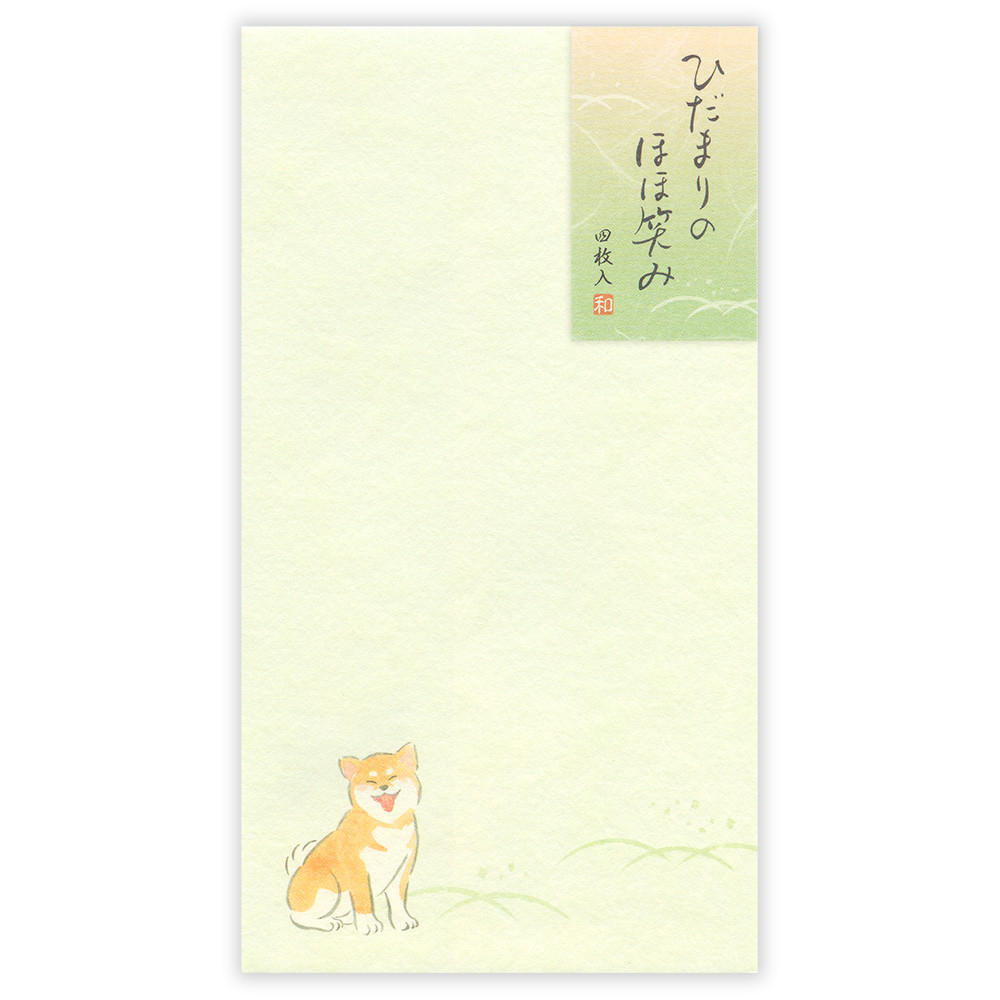 ひだまりの
ほほ笑み
四枚入
和